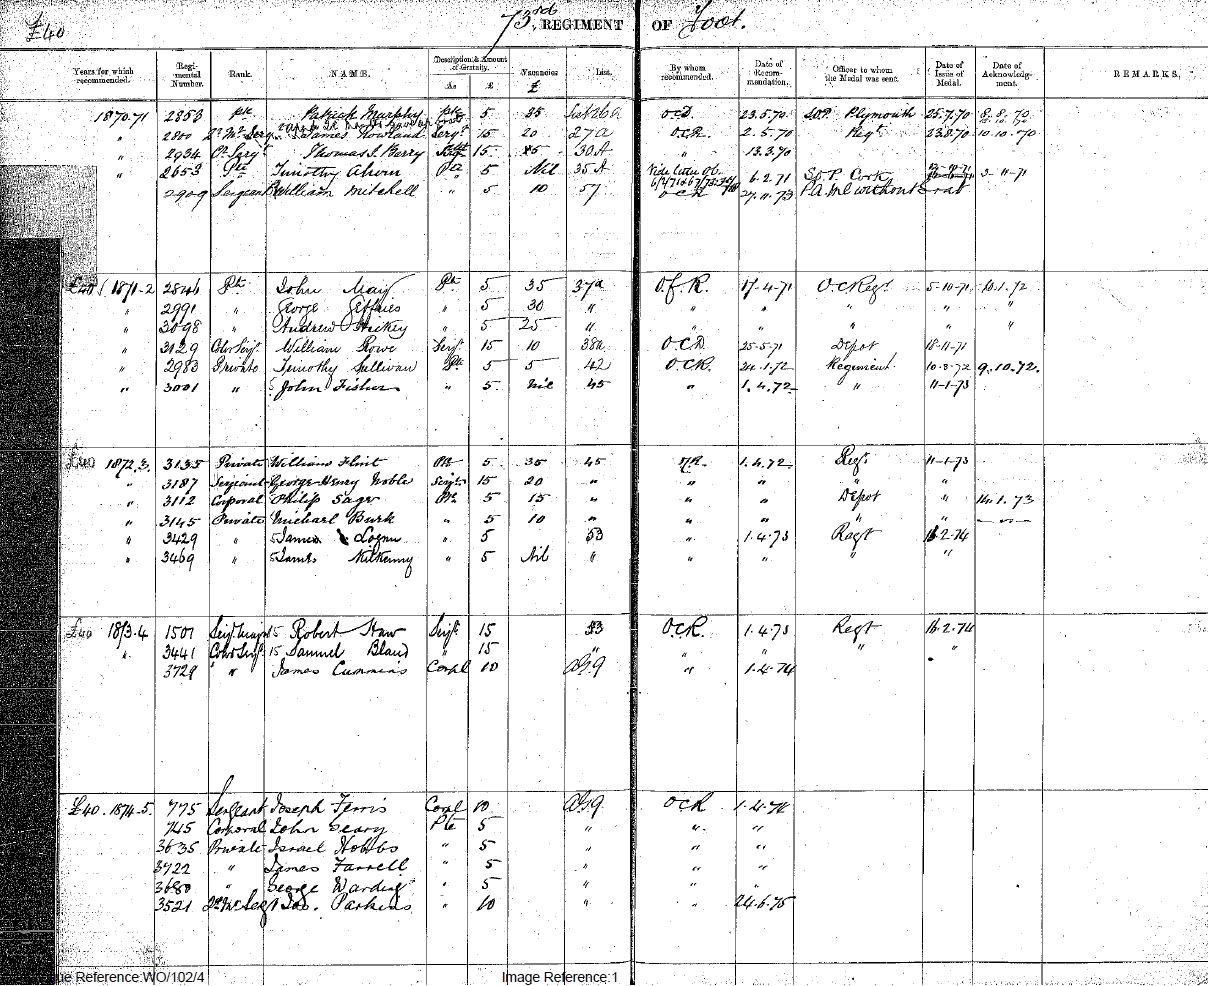 £40 73rd REGIMENT OF Foot.
Years for which recommended. Regimental Number. Rank. NAME. Description & Amount of Gratuity. As £ Vacancies £ List. By whom recommended. Date of Recommendation. Officer to whom the Medal was sent. Date of Issue of Medal. Date of Acknowledgment. REMARKS.
1870.71 2853 Pte Patrick Murphy Pte 5 35 O.C.D. 23.5.70 S.O.P. Plymouth 25.7.70 8.8.70
" 2800 Qr Mr Sergt James Rowland Sergt 15 20 27a O.C.R. 2.5.70 Regt 23.8.70 10.10.70
" 2934 Or Sergt Thomas J. Berry 15 30A " 13.3.70
" 2653 Pte Timothy Ahern Pte 5 Nil 35A Vide Letter 6.2.71 S.O.P. Cork 2-11-71
2909 Sergeant William Mitchell " 5 10 57 O.C.R. 27.11.73 P.A. Ml without Grat
£40 1871-2 2846 Pte John May Pte 5 35 37a O.f.R. 17-4-71 O.C. Regt 5-10-71 10.1.72
" 2991 " George Jeffries " 5 30 " " " " " "
" 3098 " Andrew Hickey " 5 25 " " " " "
" 3129 Color Sergt William Rowe Sergt 15 10 38a O.C.D. 25-5-71 Depot 18-11-71
" 2983 Private Timothy Sullivan Pte 5 5 42 O.C.R. 24.1.72 Regiment 10-8-72 9.10.72.
" 3001 " John Fisher " 5 Nil 45 " 1.4.72 " 11-1-73
£40 1872.3. 3135 Private William Flint Pte 5 35 45 1.4.72 Regt 11-1-73
" 3187 Sergeant George Henry Noble Sergt 15 20 " " " " "
" 3112 Corporal Philip Sage Pte 5 15 " " " Depot " 14.1.73
" 3145 Private Michael Burk " 5 10 " " " " "
" 3429 " James Logan " 5 53 " 1.4.73 Regt 16.2.74
" 3469 " James Kilkenny " 5 Nil " " " " "
£40 1873.4 1507 Sergt Major 15 Robert Haw Sergt 15 53 O.C.R. 1.4.73 Regt 16.2.74
" 3441 Color Sergt 15 Samuel Bland " 15 " " " " "
3729 " James Cummins Corpl 10 AG9 " 1.4.74
£40. 1874-5. 775 Sergeant Joseph Ferris Corpl 10 AG9 OCR 1.4.74
745 Corporal John Geary Pte 5 " " "
3635 Private Israel Hobbs " 5 " " "
3722 " James Farrell " 5 " " "
3680 " George Warding " 5 " " "
3521 Qr Mr Sergt Jas. Parkins " 10 " " 24.6.75
ue Reference:WO/102/4 Image Reference:1